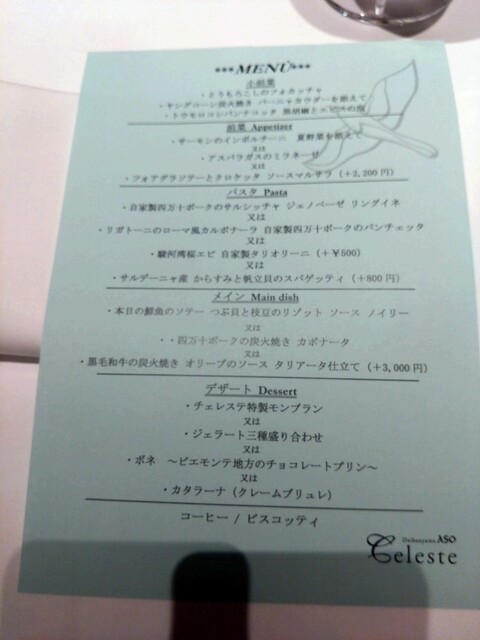 ***MENÙ***
小前菜
・とうもろこしのフォカッチャ
・ヤングコーン炭火焼き バーニャカウダーを添えて
・トウモロコシパンナコッタ 黒胡椒とエビスの泡
前菜 Appetizer
・サーモンのインボルティーニ 夏野菜を添えて
又は
・アスパラガスのミラネーゼ
又は
・フォアグラソテーとクロケッタ ソースマルサラ（+2,200円）
パスタ Pasta
・自家製四万十ポークのサルシッチャ ジェノベーゼ リングイネ
又は
・リガトーニのローマ風カルボナーラ 自家製四万十ポークのパンチェッタ
又は
・駿河湾桜エビ 自家製タリオリーニ（+￥500）
又は
・サルデーニャ産 からすみと帆立貝のスパゲッティ（+800円）
メイン Main dish
・本日の鮮魚のソテー つぶ貝と枝豆のリゾット ソース ノイリー
又は
・・四万十ポークの炭火焼き カポナータ
又は
・黒毛和牛の炭火焼き オリーブのソース タリアータ仕立て（+3,000円）
デザート Dessert
・チェレステ特製モンブラン
又は
・ジェラート三種盛り合わせ
又は
・ボネ ～ピエモンテ地方のチョコレートプリン～
又は
・カタラーナ（クレームブリュレ）
コーヒー / ビスコッティ
Daikanyama ASO
Celeste